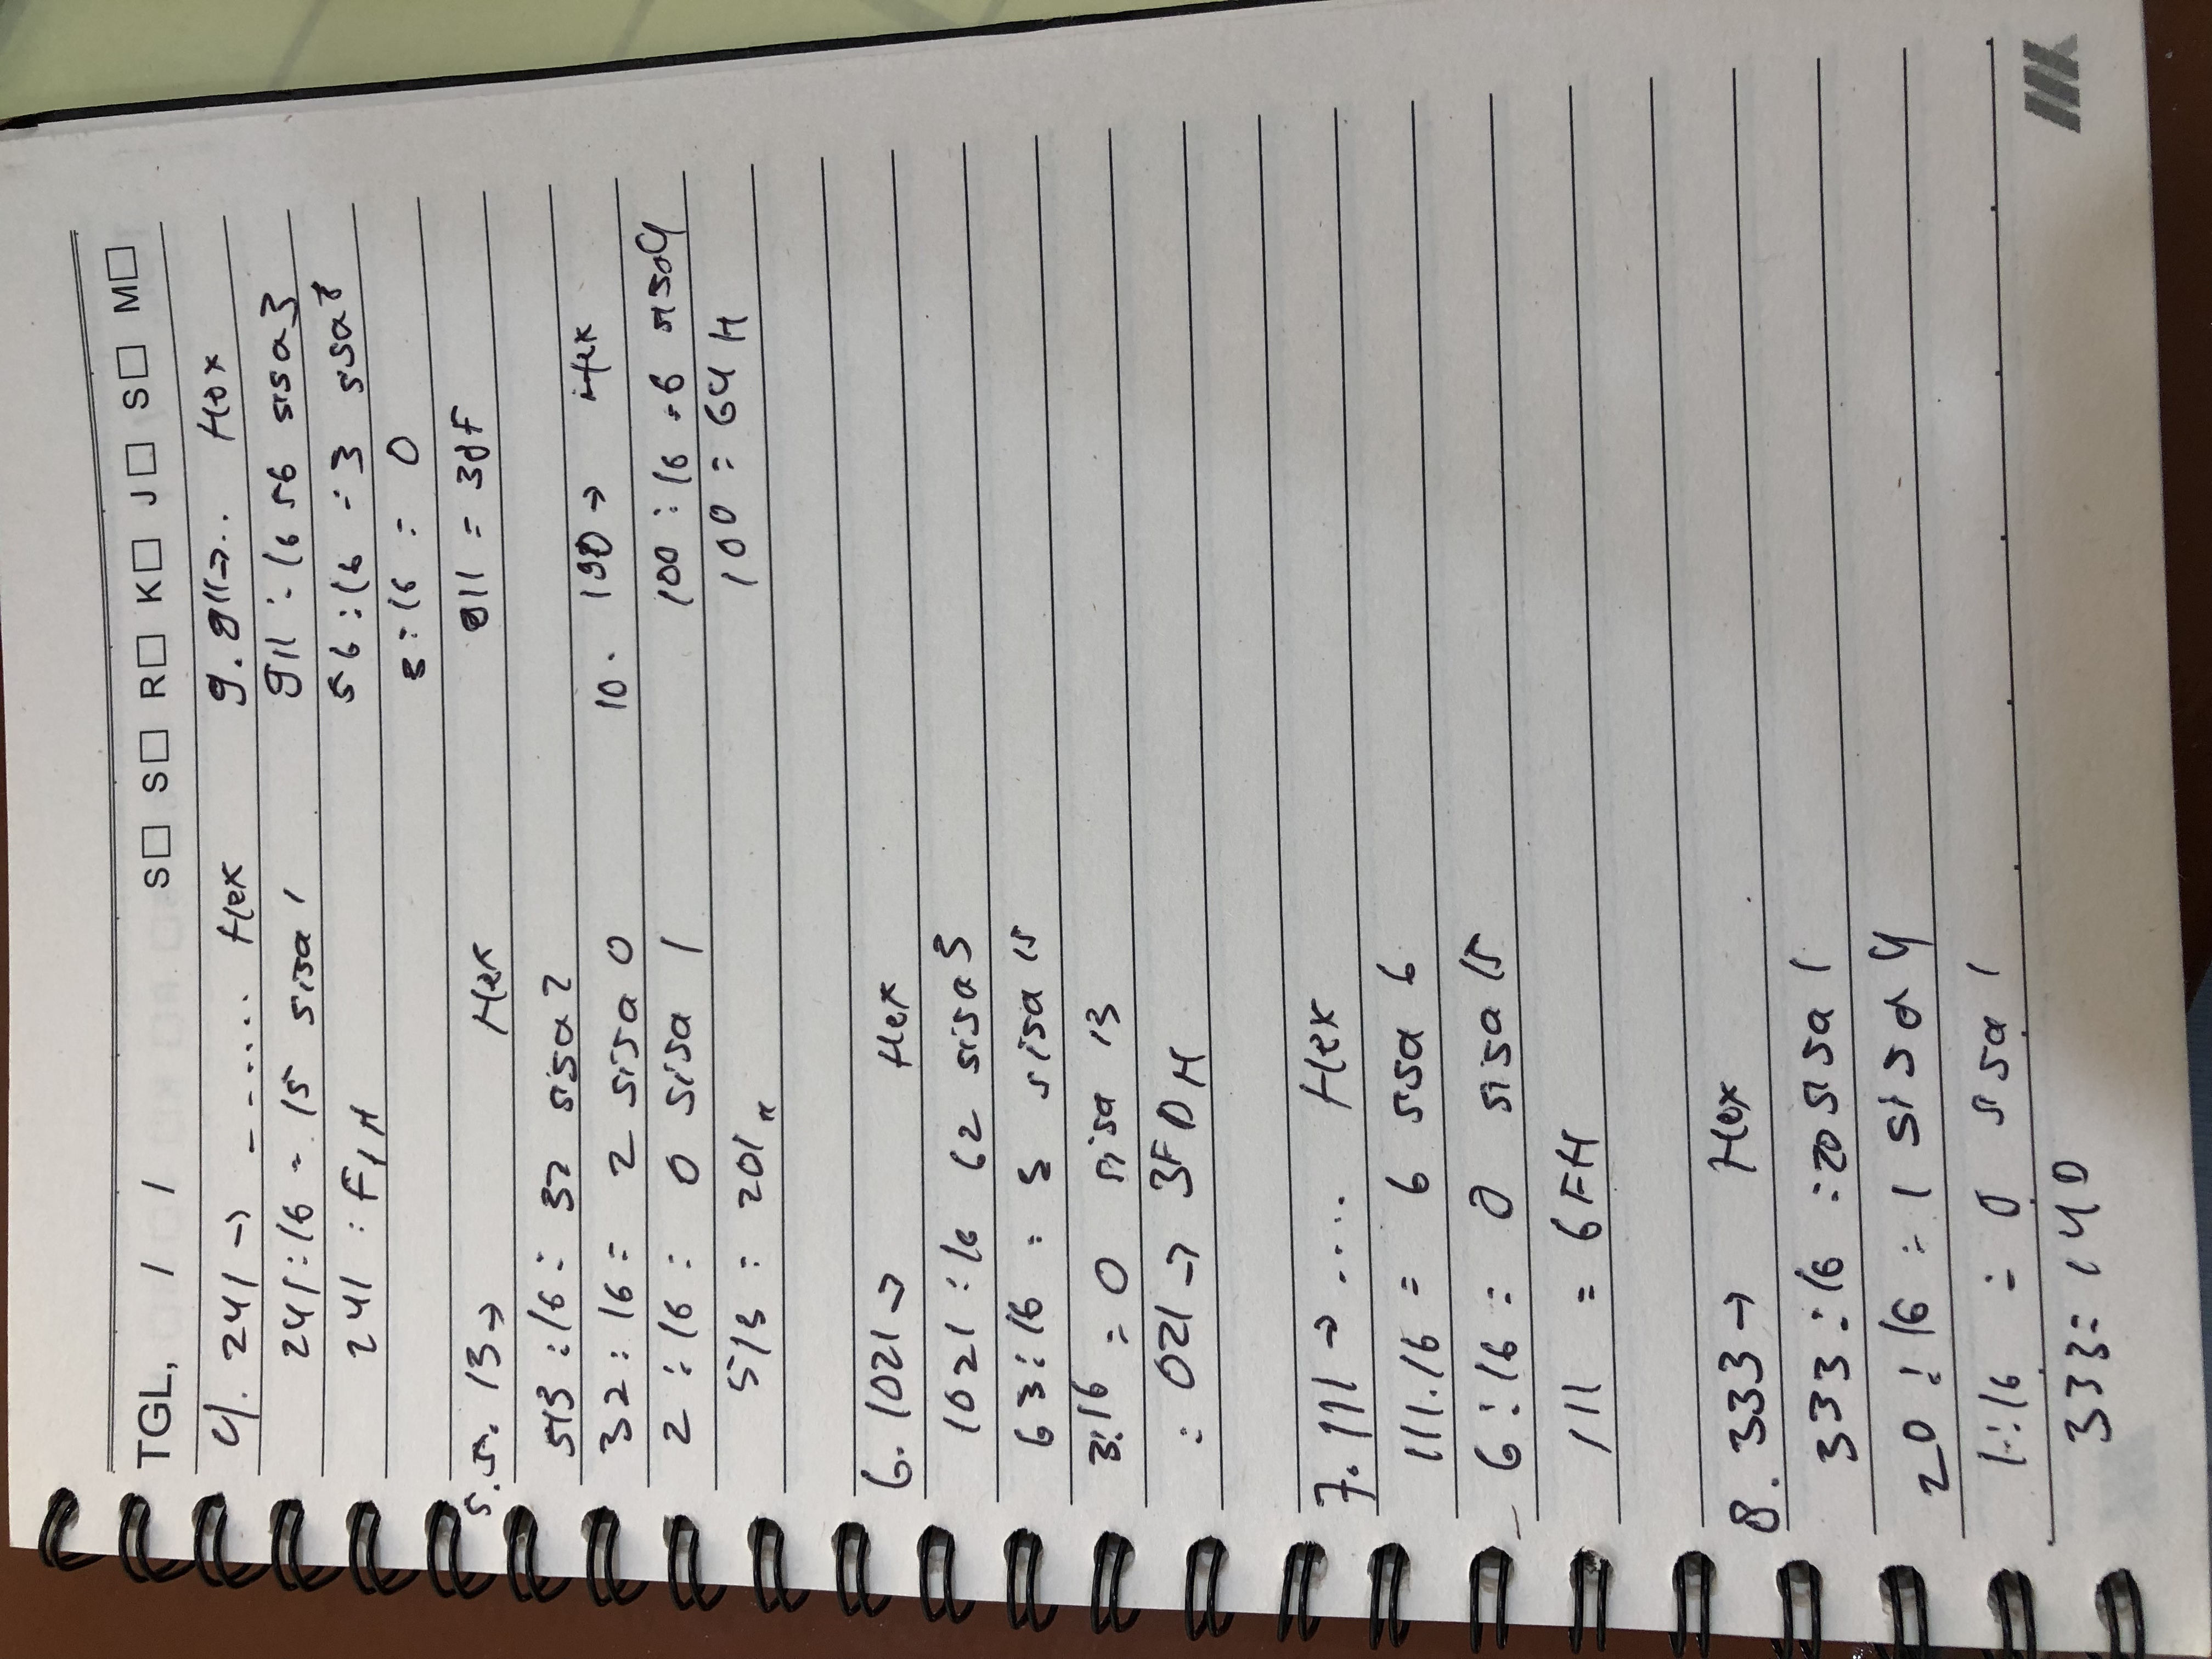 TGL, / / S□ S□ R□ K□ J□ S□ M□
4. 241 → ------ Hex
241 : 16 = 15 sisa 1
241 : F1H
5.5. 13 → Hex
513 : 16 = 32 sisa 2
32 : 16 = 2 sisa 0
2 : 16 = 0 sisa 1
513 = 201H
6. 1021 → Hex
1021 : 16 62 sisa 3
63 : 16 = 3 sisa 15
3 : 16 = 0 sisa 13
: 021 → 3FDH
7. 111 → .... Hex
111.16 = 6 ssa 6
6 : 16 = 0 sisa 15
111 = 6FH
8. 333 → Hex
333 : 16 = 20 sisa 1
20 : 16 = 1 sisa 4
1 : 16 = 0 ssa 1
333 = 14D
9. 911 → .. Hex
911 : 16 56 sisa 3
56 : 16 = 3 ssa 8
3 : 16 = 0
911 = 38F
10. 100 → Hex
100 : 16 = 6 sisa 4
100 = 64H